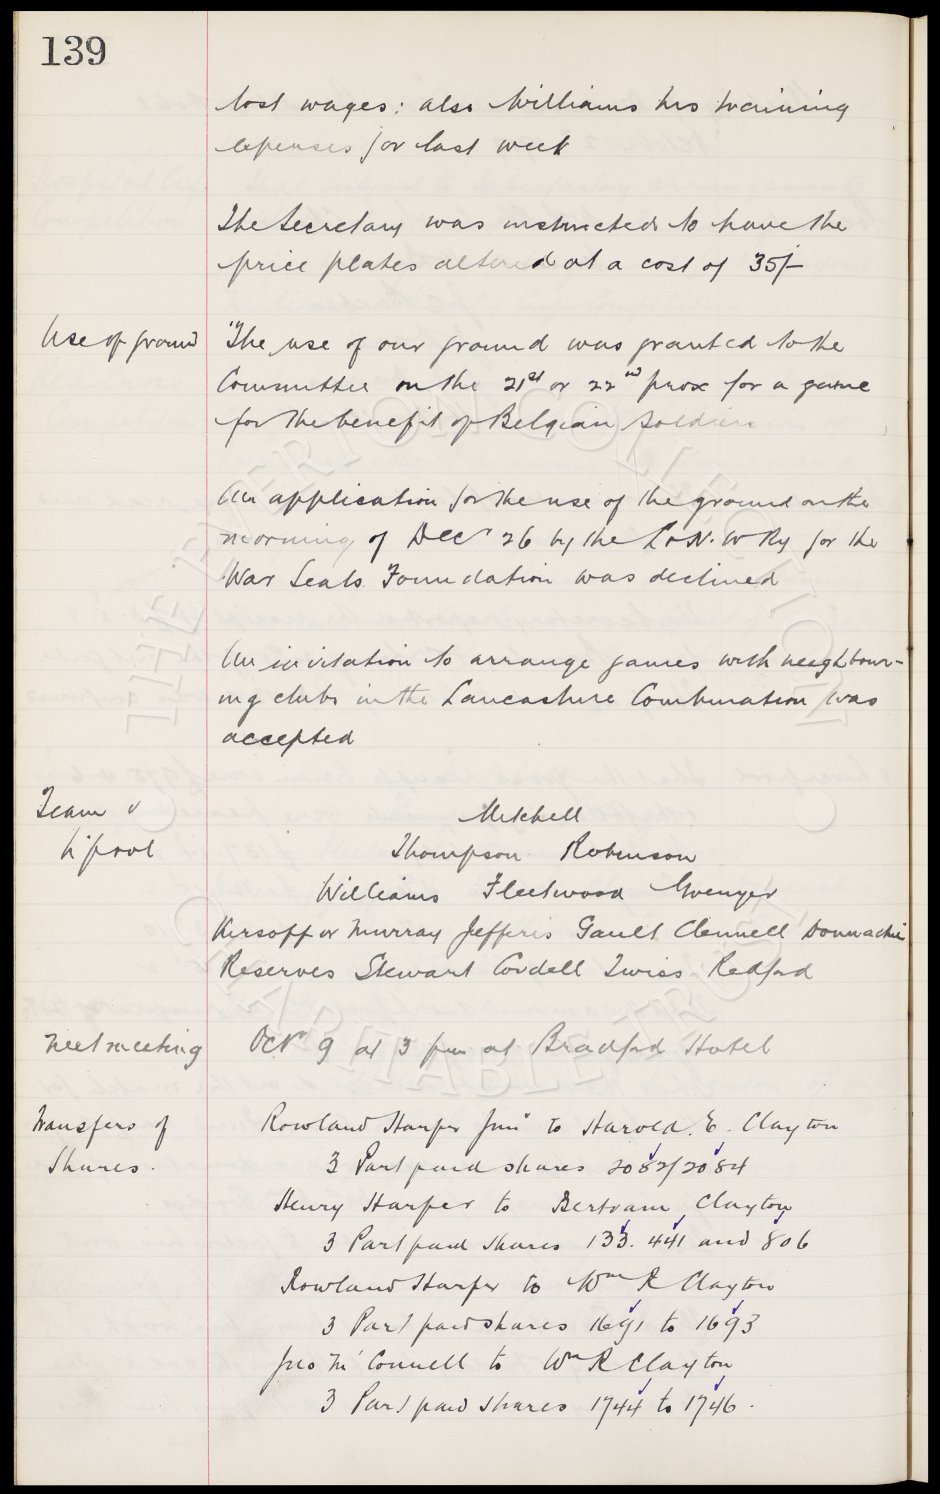 139
lost wages: also Williams his training
expenses for last week
The Secretary was instructed to have the
price plates altered at a cost of 35/-
Use of ground
The use of our ground was granted to the
Committee on the 21st or 22nd prox for a game
for the benefit of Belgian Soldiers
An application for the use of the ground on the
morning of Decr 26 by the L & N. W Ry for the
War Seals Foundation was declined
An invitation to arrange games with neighbour-
ing clubs in the Lancashire Combination was
accepted
Team v
L'pool
Mitchell
Thompson Robinson
Williams Fleetwood Grenyer
Kirsopp or Murray Jefferis Gault Clennell Donnachie
Reserves Stewart Cordell Twiss Redford
Next meeting
Octr 9 at 3 pm at Bradford Hotel
Transfers of
Shares.
Rowland Harper Junr to Harold. E. Clayton
3 Part paid shares 2082/2084
Henry Harper to Bertram Clayton
3 Part paid shares 133. 441 and 806
Rowland Harper to Wm R Clayton
3 Part paid shares 1691 to 1693
Jno McConnell to Wm R Clayton
3 Part paid shares 1744 to 1746.
THE EVERTON COLLECTION
CHARITABLE TRUST